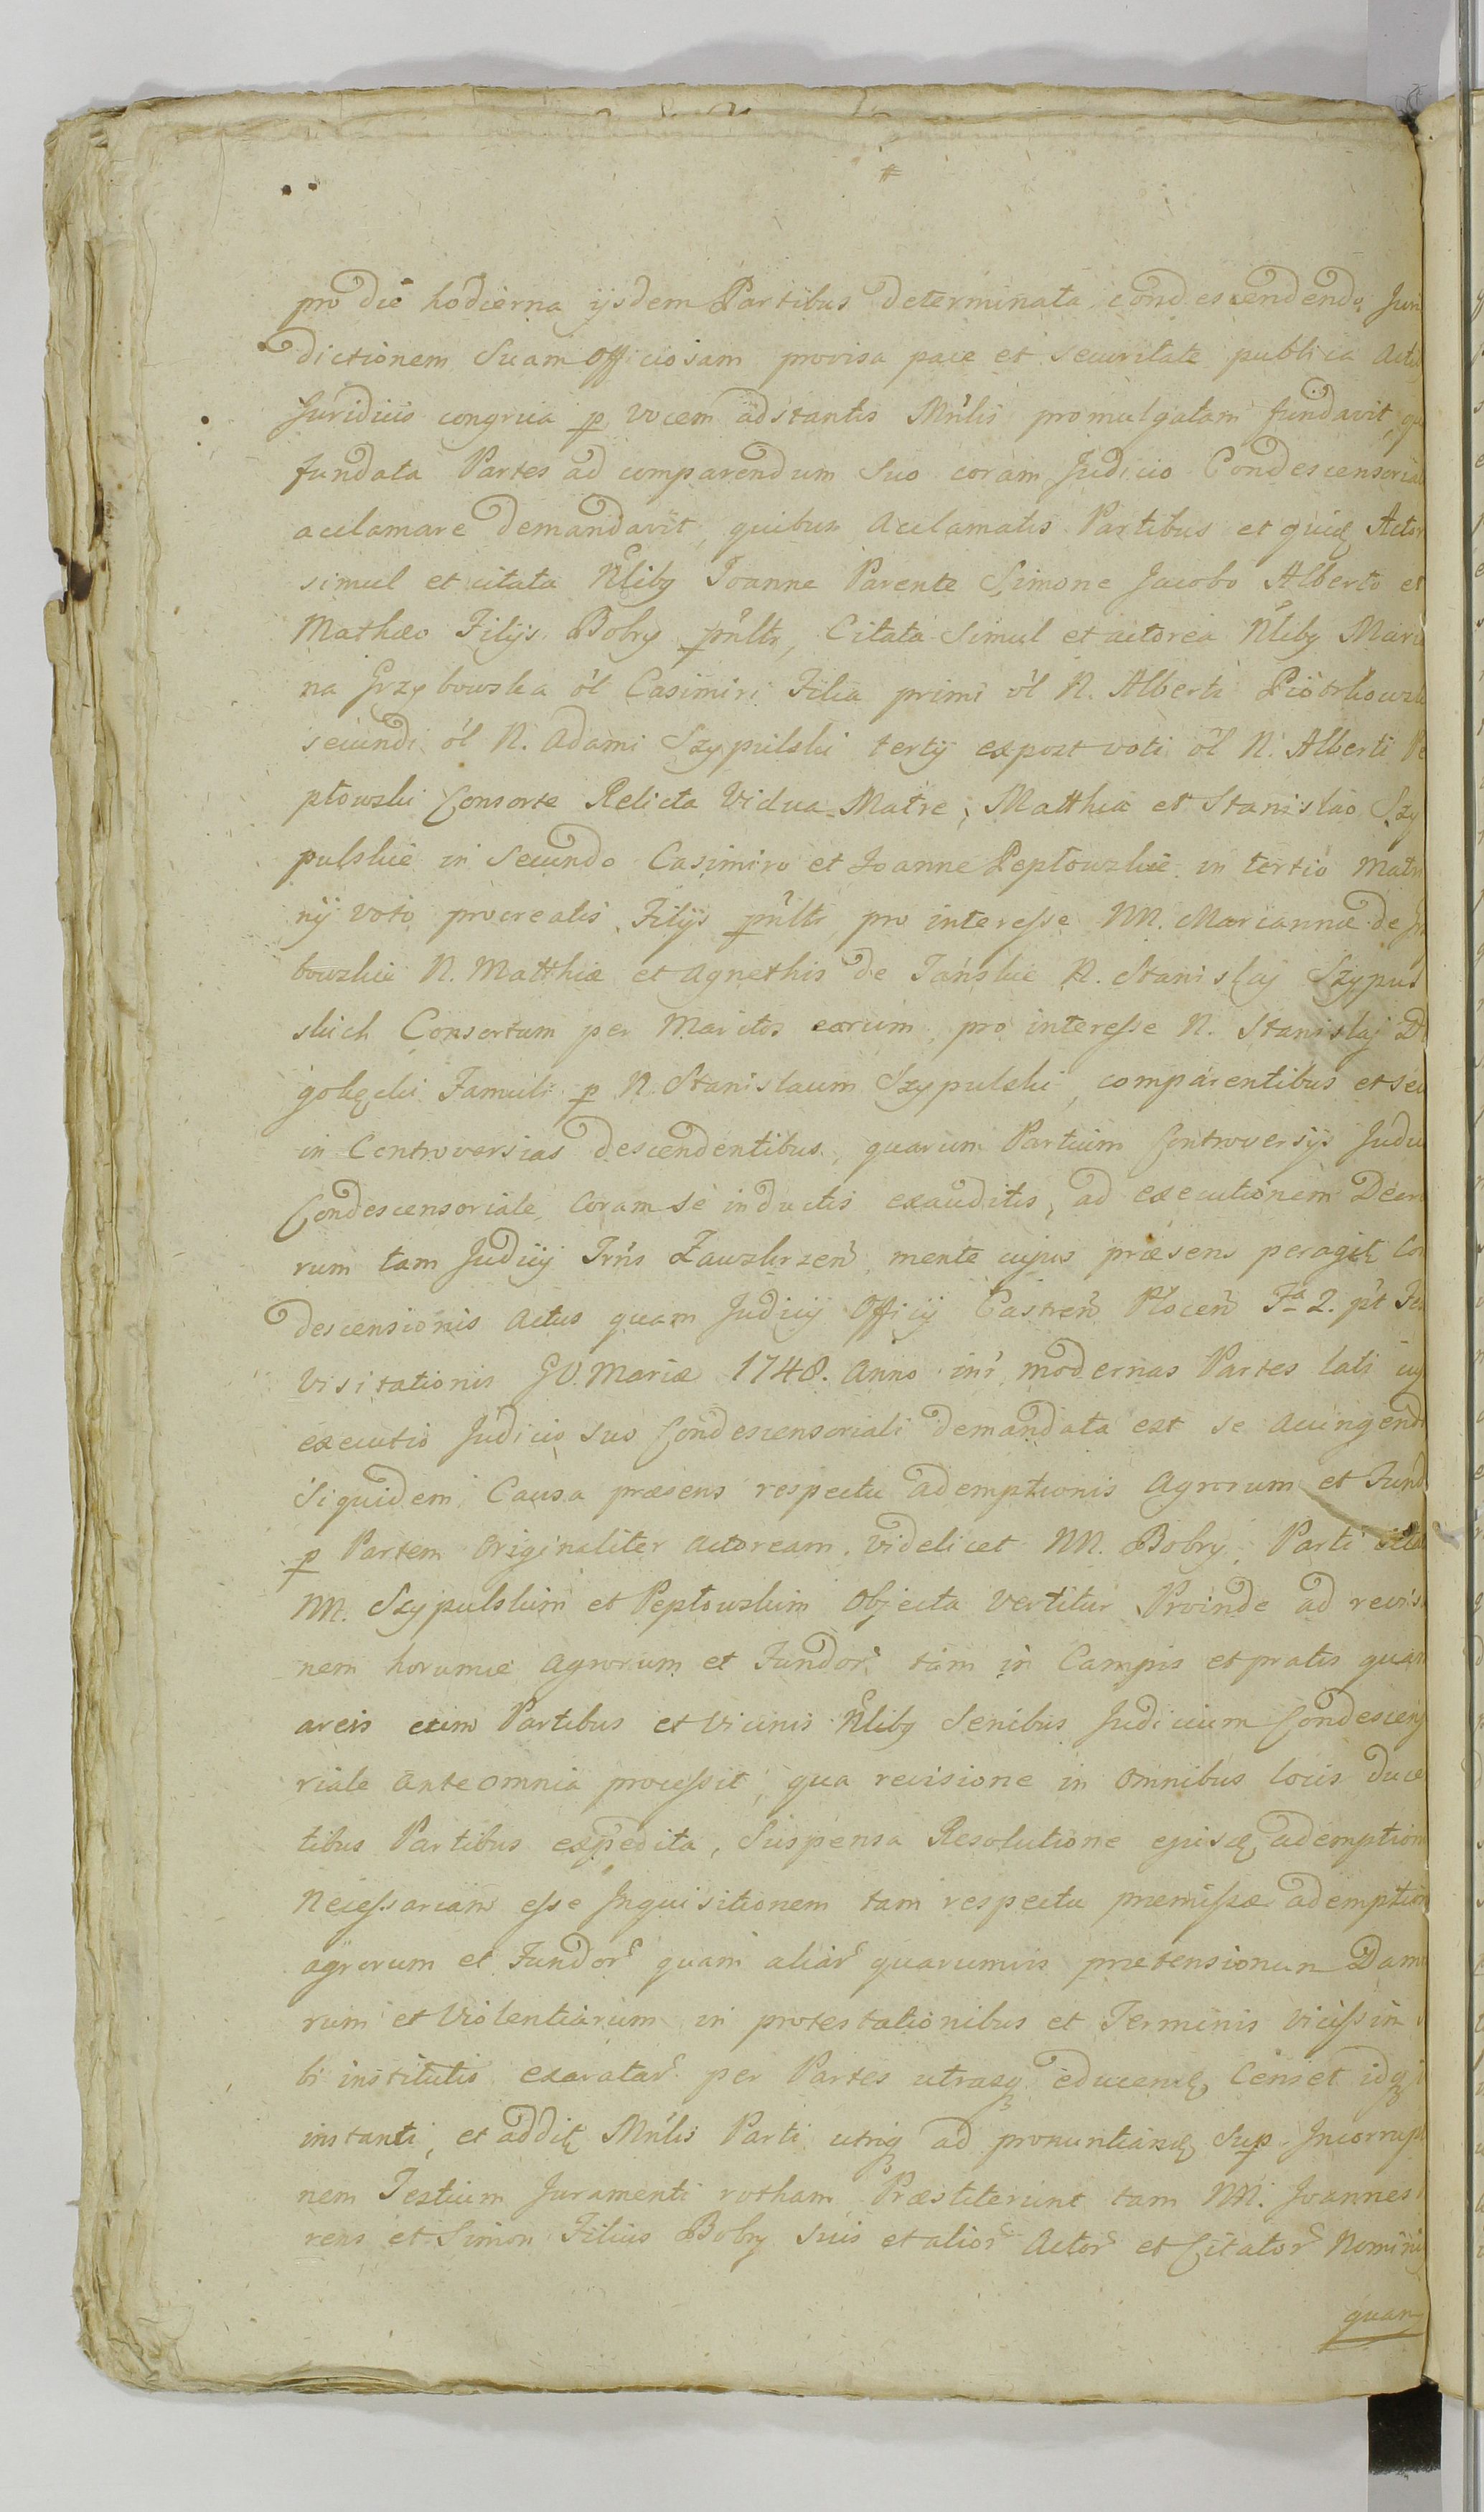 pro die hodierna ijsdem Partibus determinata condescendendo Juris
dictionem Suam Officiosam provisa pace et securitate publica
Juridicis congrua p vocem adstantis Mnlis promulgatam fundavit
fundata Partes ad comparendum Suo coram Judicio Condescensoria
acclamare demandavit, quibus acclamatis Partibus et quidem Actor
simul et citata Nlibg Joanne Parente Simone Jacobo Alberto et
Mathæo Filijs Bobry pnltr, Citata Simul et actorea Nlibg Maria
na Grzybowska ol Casimiri Filia primi ol N. Alberti Piotrkowsk
secundi ol N. Adami Szypulski tertij expost voti ol N. Alberti Pe
płowski Consorte Relicta Vidua Matre, Matthia et Stanislao Szy
pulskie in Secundo Casimiro et Joanne Pepłowskie in tertio Matri
nij voto procreatis Filijs pnltr, pro interesse NN. Mariannæ de
bowskie N. Matthiæ et Agnethis de Jańskie N. Stanislaj Szypul
skich Consortum per Maritos earum, pro interesse N. Stanislaj
Famuli p N. Stanislaum Szypulski, comparentibus et
in Controversias descendentibus, quarum Partium Controversijs Judi
Condescensoriale, coram se inductis exauditis, ad executionem Decre
rum tam Judicij Trris Zawskrzen, mente cujus præsens peragitur Con
descensionis Actus quam Judicij Officij Castren Płocen Fa 2. pt Fes
Visitationis GV. Mariæ 1748. Anno inr modernas Partes lati
executio Judicio suo Condescensoriali demandata est se accingend
Siquidem Causa præsens respectu ademptionis Agrorum et Fund
p Partem Originaliter Actoream, videlicet NN. Bobry, Parti
NN. Szypulskim et Pepłowskim Objecta Vertitur Proinde ad revisi
nem horumce Agrorum et Fundor tam in Campis et pratis quam
areis cum Partibus et vicinis Nlibg Senibus Judicium Condescens
riale ante omnia processit, qua revisione in omnibus locis ducen
tibus Partibus expedita, Suspensa Resolutione ademption
Necessariam esse Inquisitionem tam respectu præmissæ ademption
agrorum et Fundor quam aliar quarumvis prætensionum Damno
rum et Violentiarum in protestationibus et Terminis vicissim
li institutis exaratar per Partes utrasq educendam Censet idq
instanti, et additur Mnlis Parti utriq ad pronuntiandam Sup Incorrupt
nem Testium Juramenti rotham Præstiterunt tam NN. Joannes
rens et Simon Filius Bobry suis et alior Actor et Citator Nomini
quam